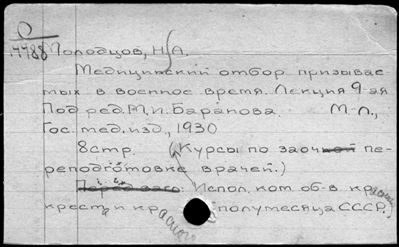 О
17788 Молодцов, Н.А.
Медицинский отбор призывае-
мых в военное время. Лекция 9-ая
Под ред. М.И. Баранова. М.-Л.,
Гос. мед. изд., 1930
8 стр. (Курсы по заочной пе-
реподготовке врачей.)
Испол. ком об-в красн.
креста и красного полумесяца СССР.